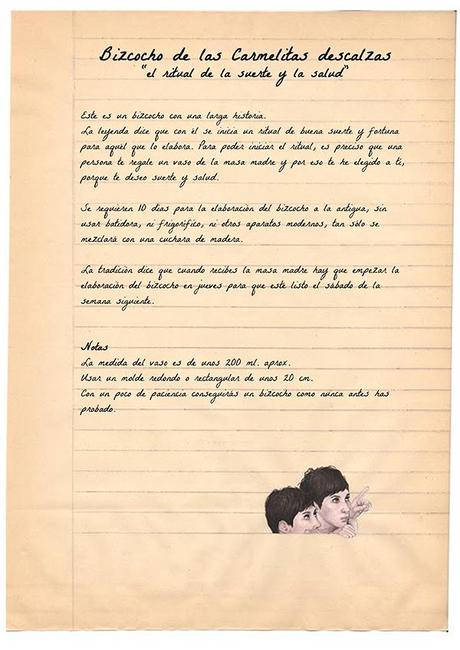 Bizcocho de las Carmelitas descalzas
"el ritual de la suerte y la salud"
Este es un bizcocho con una larga historia.
La leyenda dice que con él se inicia un ritual de buena suerte y fortuna
para aquél que lo elabora. Para poder iniciar el ritual, es preciso que una
persona te regale un vaso de la masa madre y por eso te he elegido a tí,
porque te deseo suerte y salud.
Se requieren 10 días para la elaboración del bizcocho a la antigua, sin
usar batidora, ni frigorífico, ni otros aparatos modernos, tan sólo se
mezclará con una cuchara de madera.
La tradición dice que cuando recibes la masa madre hay que empezar la
elaboración del bizcocho en jueves para que este listo el sábado de la
semana siguiente.
Notas
La medida del vaso es de unos 200 ml. aprox.
Usar un molde redondo o rectangular de unos 20 cm.
Con un poco de paciencia conseguirás un bizcocho como nunca antes has
probado.